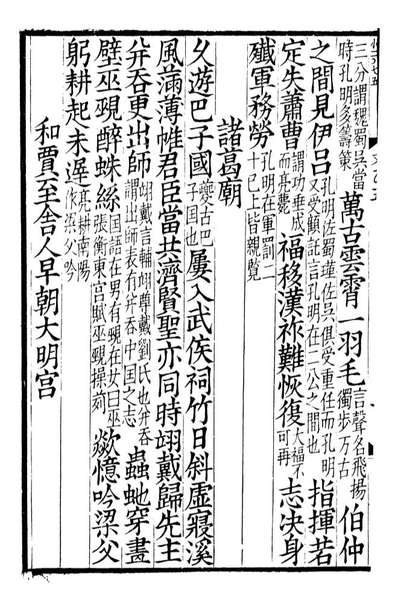 三分謂魏蜀吳當時孔明多籌策萬古雲霄一羽毛言聲名飛揚獨步万古伯仲
之間見伊呂孔明佐蜀瑾佐吳俱受重任而孔明又受顧託言孔明在二公之間也指揮若
定失蕭曹謂功垂成而亮薨福移漢祚難恢復大福不可再志決身
殲軍務勞孔明在軍罰二十已上皆親覽
諸葛廟
久遊巴子國夔古巴子国也屢入武侯祠竹日斜虛寢溪
風滿薄帷君臣當共濟賢聖亦同時翊戴歸先主
并吞更出師翊戴言輔翊尊戴劉氏也并吞謂出師表有并吞中国之志蟲虵穿畫
壁巫覡醉蛛絲国語在男有覡在女曰巫張衡東宫賦巫覡操茢欻憶吟梁父
躬耕起未遲亮耕南陽作梁父吟
和賈至舍人早朝大明宮